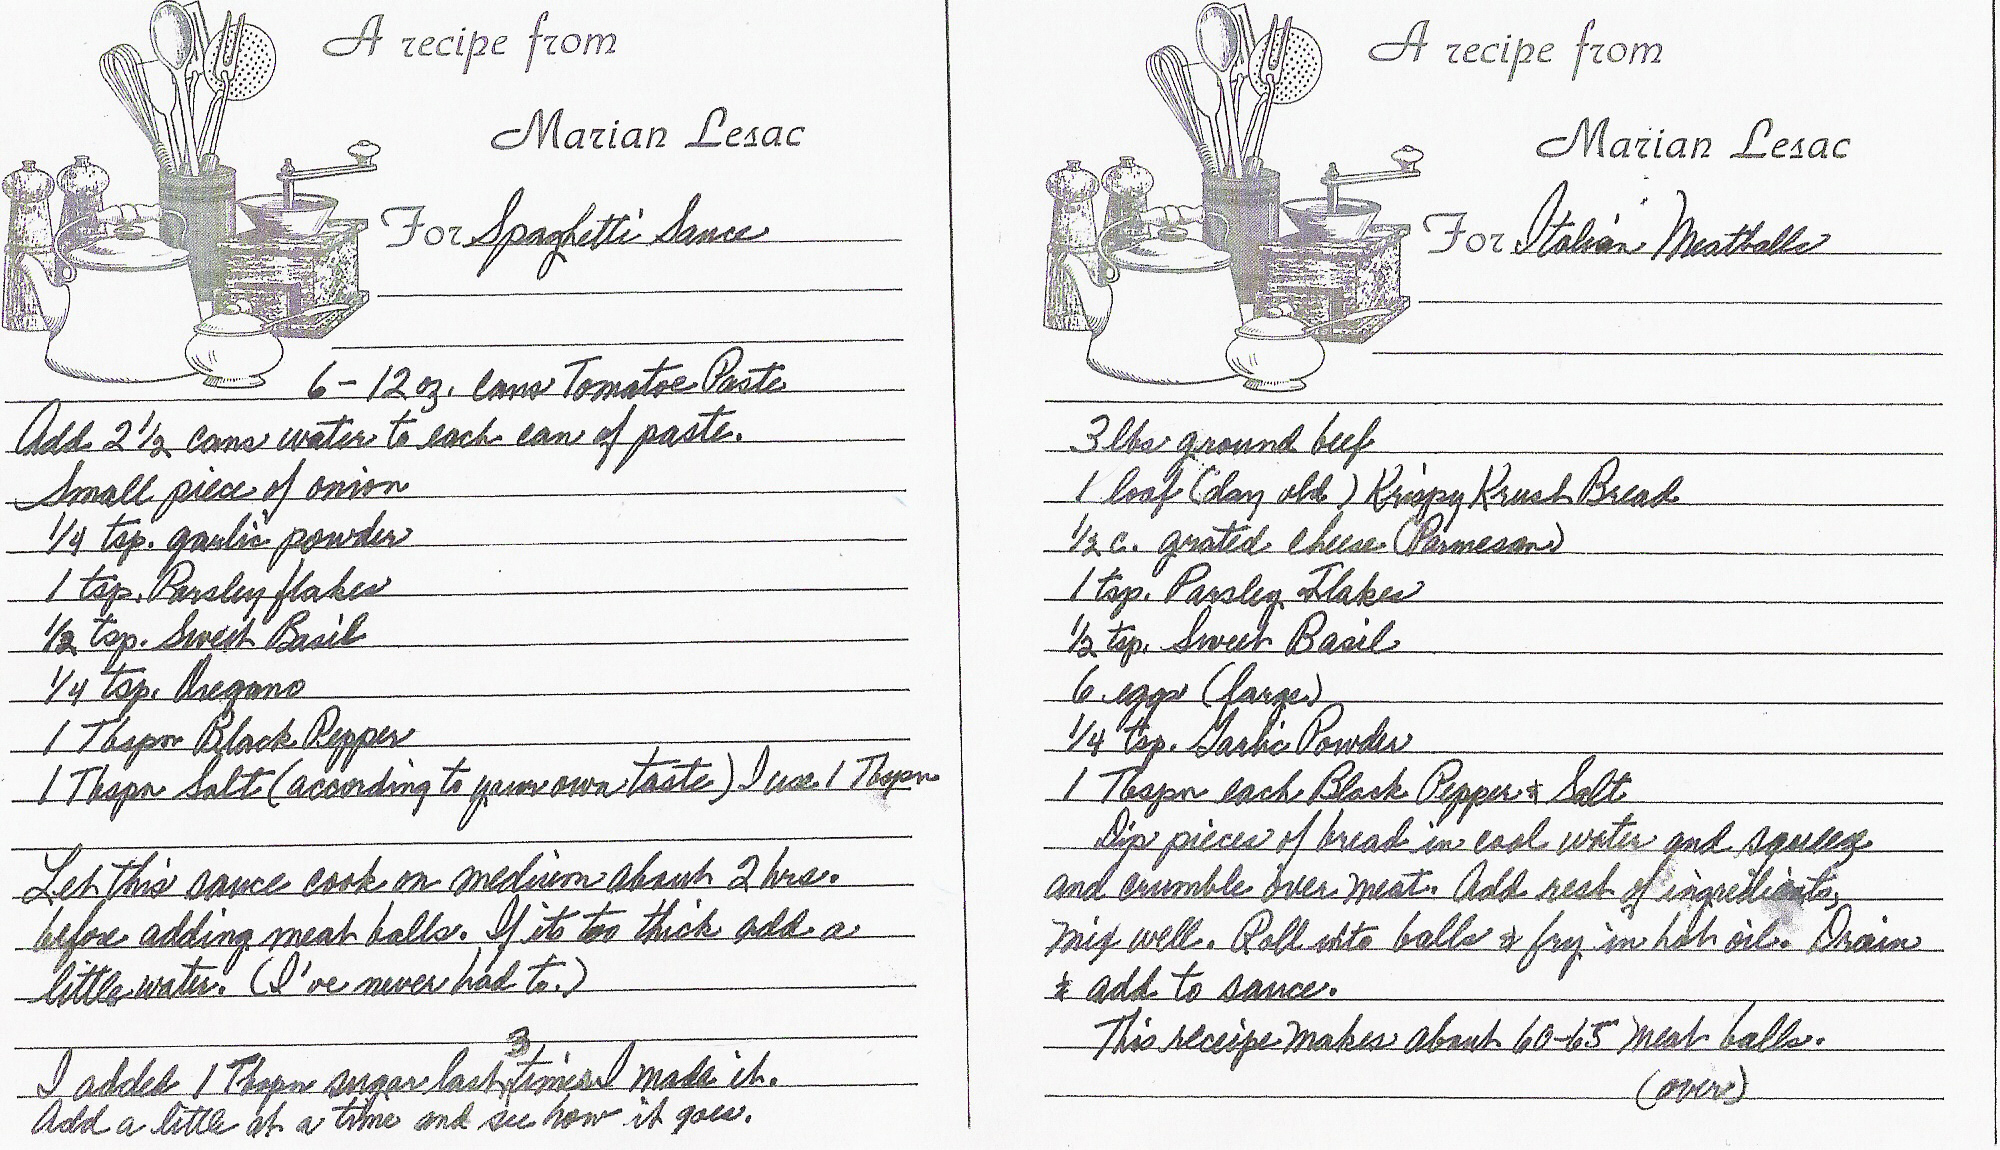 A recipe from
Marian Lesac
For Spaghetti Sauce
6 - 12 oz. cans Tomatoe Paste
Add 2 1/2 cans water to each can of paste.
Small piece of onion
1/4 tsp. garlic powder
1 tsp. Parsley flakes
1/2 tsp. Sweet Basil
1/4 tsp. Oregano
1 Tbspn Black Pepper
1 Tbspn Salt (according to your own taste) I use 1 Tbspn
Let this sauce cook on medium about 2 hrs.
before adding meat balls. If its too thick add a
little water. (I've never had to.)
I added 1 Tbspn sugar last 3 times I made it.
Add a little at a time and see how it goes.
A recipe from
Marian Lesac
For Italian Meatballs
3 lbs ground beef
1 loaf (day old) Krispy Krust Bread
1/2 c. grated cheese (Parmesan)
1 tsp. Parsley Flakes
1/2 tsp. Sweet Basil
6 eggs (large)
1/4 tsp. Garlic Powder
1 Tbspn each Black Pepper & Salt
Dip pieces of bread in cool water and squeeze
and crumble over meat. Add rest of ingredients,
mix well. Roll into balls & fry in hot oil. Drain
& add to sauce.
This receipe makes about 60-65 meat balls.
(over)